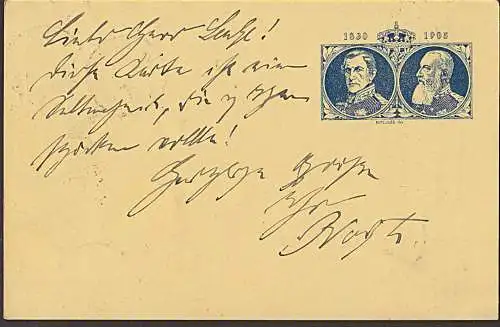 1830 1905
Lieber Herr
diese Karte ist eine
Seltenheit, die ich Ihnen
wollte!
Herzliche Grüße
Ihr